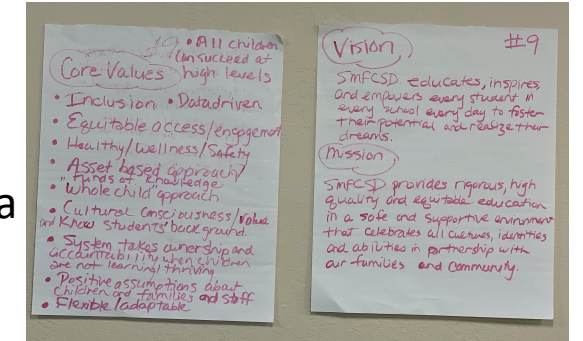 a
#9 • All children
Core Values can succeed at
high levels
• Inclusion • Data driven
• Equitable access/engagement
• Healthy/Wellness/Safety
• Asset based approach/
"Funds of knowledge"
• Whole child approach
• Cultural Consciousness/value
and Know students' background.
• System takes ownership and
accountability when children
are not learning/thriving
• Positive assumptions about
children and families and staff
• Flexible/adaptable
Vision #9
SMFCSD educates, inspires,
and empowers every student in
every school every day to foster
their potential and realize their
dreams.
Mission
SMFCSD provides rigorous, high
quality and equitable education
in a safe and supportive environment
that celebrates all cultures, identities
and abilities in partnership with
our families and community.